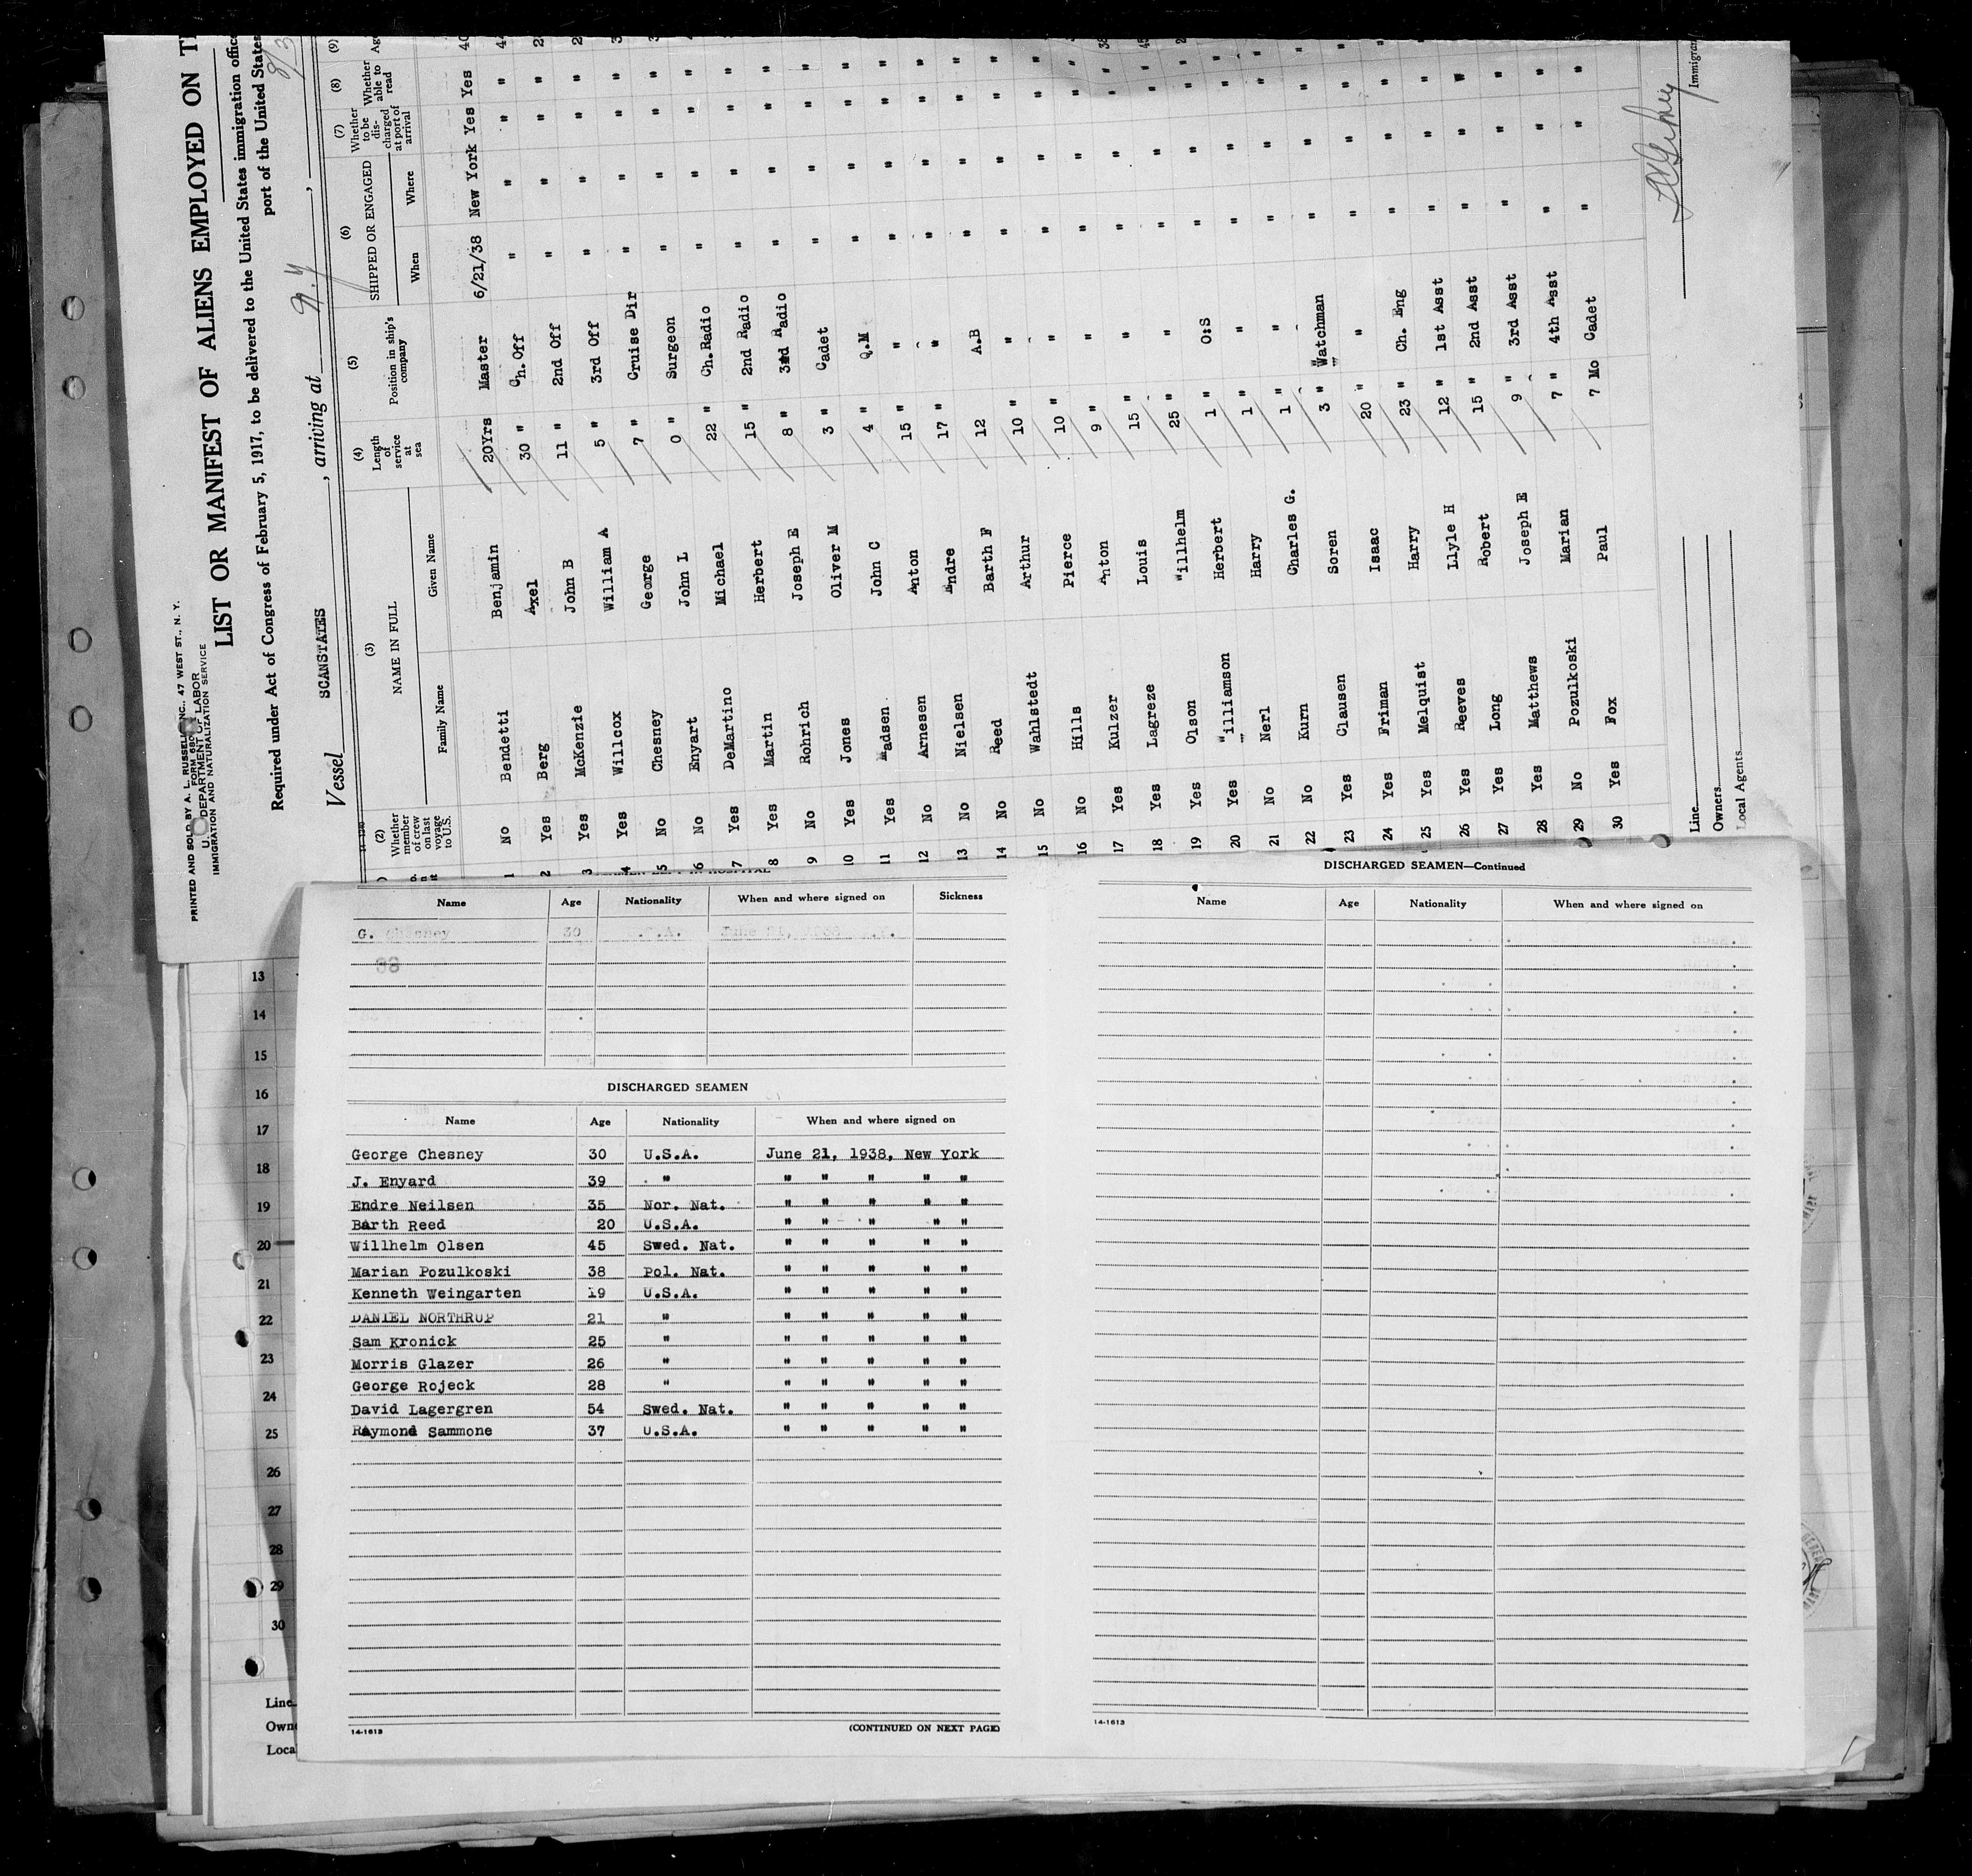 PRINTED AND SOLD BY A. L. RUSSELL, INC., 47 WEST ST., N. Y.
FORM 680
U. S. DEPARTMENT OF LABOR
IMMIGRATION AND NATURALIZATION SERVICE
LIST OR MANIFEST OF ALIENS EMPLOYED ON
Required under Act of Congress of February 5, 1917, to be delivered to the United States immigration
port of the United States
Vessel SCANSTATES, arriving at N.Y.
(2) Whether member of crew on last voyage to U.S.
(3) NAME IN FULL Family Name Given Name
(4) Length of service at sea
(5) Position in ship's company
(6) SHIPPED OR ENGAGED When Where
(7) Whether to be discharged at port of arrival
(8) Whether able to read
(9)
1 No Bendetti Benjamin 20Yrs Master 6/21/38 New York Yes Yes 40
2 Yes Berg Axel 30 " Ch. Off " " " "
3 Yes McKenzie John B 11 " 2nd Off " " " "
4 Yes Willcox William A 5 " 3rd Off " " " "
5 No Chesney George 7 " Cruise Dir " " " "
6 No Enyart John L 0 " Surgeon " " " "
7 Yes DeMartino Michael 22 " Ch.Radio " " " "
8 Yes Martin Herbert 15 " 2nd Radio " " " "
9 No Rohrich Joseph E 8 " 3rd Radio " " " "
10 Yes Jones Oliver M 3 " Cadet " " " "
11 Yes Madsen John C 4 " Q.M " " " "
12 No Arnesen Anton 15 " " " " " "
13 No Nielsen Andre 17 " " " " " "
14 No Reed Barth F 12 A.B " " " "
15 No Wahlstedt Arthur 10 " " " " " "
16 No Hills Pierce 10 " " " " " "
17 Yes Kulzer Anton 9 " " " " " "
18 Yes Lagreze Louis 15 " " " " " "
19 Yes Olson Willhelm 25 " " " " " "
20 Yes Williamson Herbert 1 " O:S " " " "
21 No Nerl Harry 1 " " " " " "
22 No Kurn Charles G. 1 " " " " " "
23 Yes Clausen Soren 3 " Watchman " " " "
24 Yes Friman Isaac 20 " " " " " "
25 Yes Melquist Harry 23 " Ch. Eng " " " "
26 Yes Reeves Llyle H 12 " 1st Asst " " " "
27 Yes Long Robert 15 " 2nd Asst " " " "
28 Yes Matthews Joseph E 9 " 3rd Asst " " " "
29 No Pozulkoski Marian 7 " 4th Asst " " " "
30 Yes Fox Paul 7 Mo Cadet " " " "
Line
Owners
Local Agents
Name Age Nationality When and where signed on Sickness
G. Chesney 30 June 21, 1938
38
DISCHARGED SEAMEN
Name Age Nationality When and where signed on
George Chesney 30 U.S.A. June 21, 1938, New York
J. Enyard 39 " " " " " "
Endre Neilsen 35 Nor. Nat. " " " " "
Barth Reed 20 U.S.A. " " " " "
Willhelm Olsen 45 Swed. Nat. " " " " "
Marian Pozulkoski 38 Pol. Nat. " " " " "
Kenneth Weingarten 19 U.S.A. " " " " "
DANIEL NORTHRUP 21 " " " " " "
Sam Kronick 25 " " " " " "
Morris Glazer 26 " " " " " "
George Rojeck 28 " " " " " "
David Lagergren 54 Swed. Nat. " " " " "
Raymond Sammone 37 U.S.A. " " " " "
14-1613 (CONTINUED ON NEXT PAGE)
DISCHARGED SEAMEN—Continued
Name Age Nationality When and where signed on
14-1613
13
14
15
16
17
18
19
20
21
22
23
24
25
26
27
28
29
30
Line